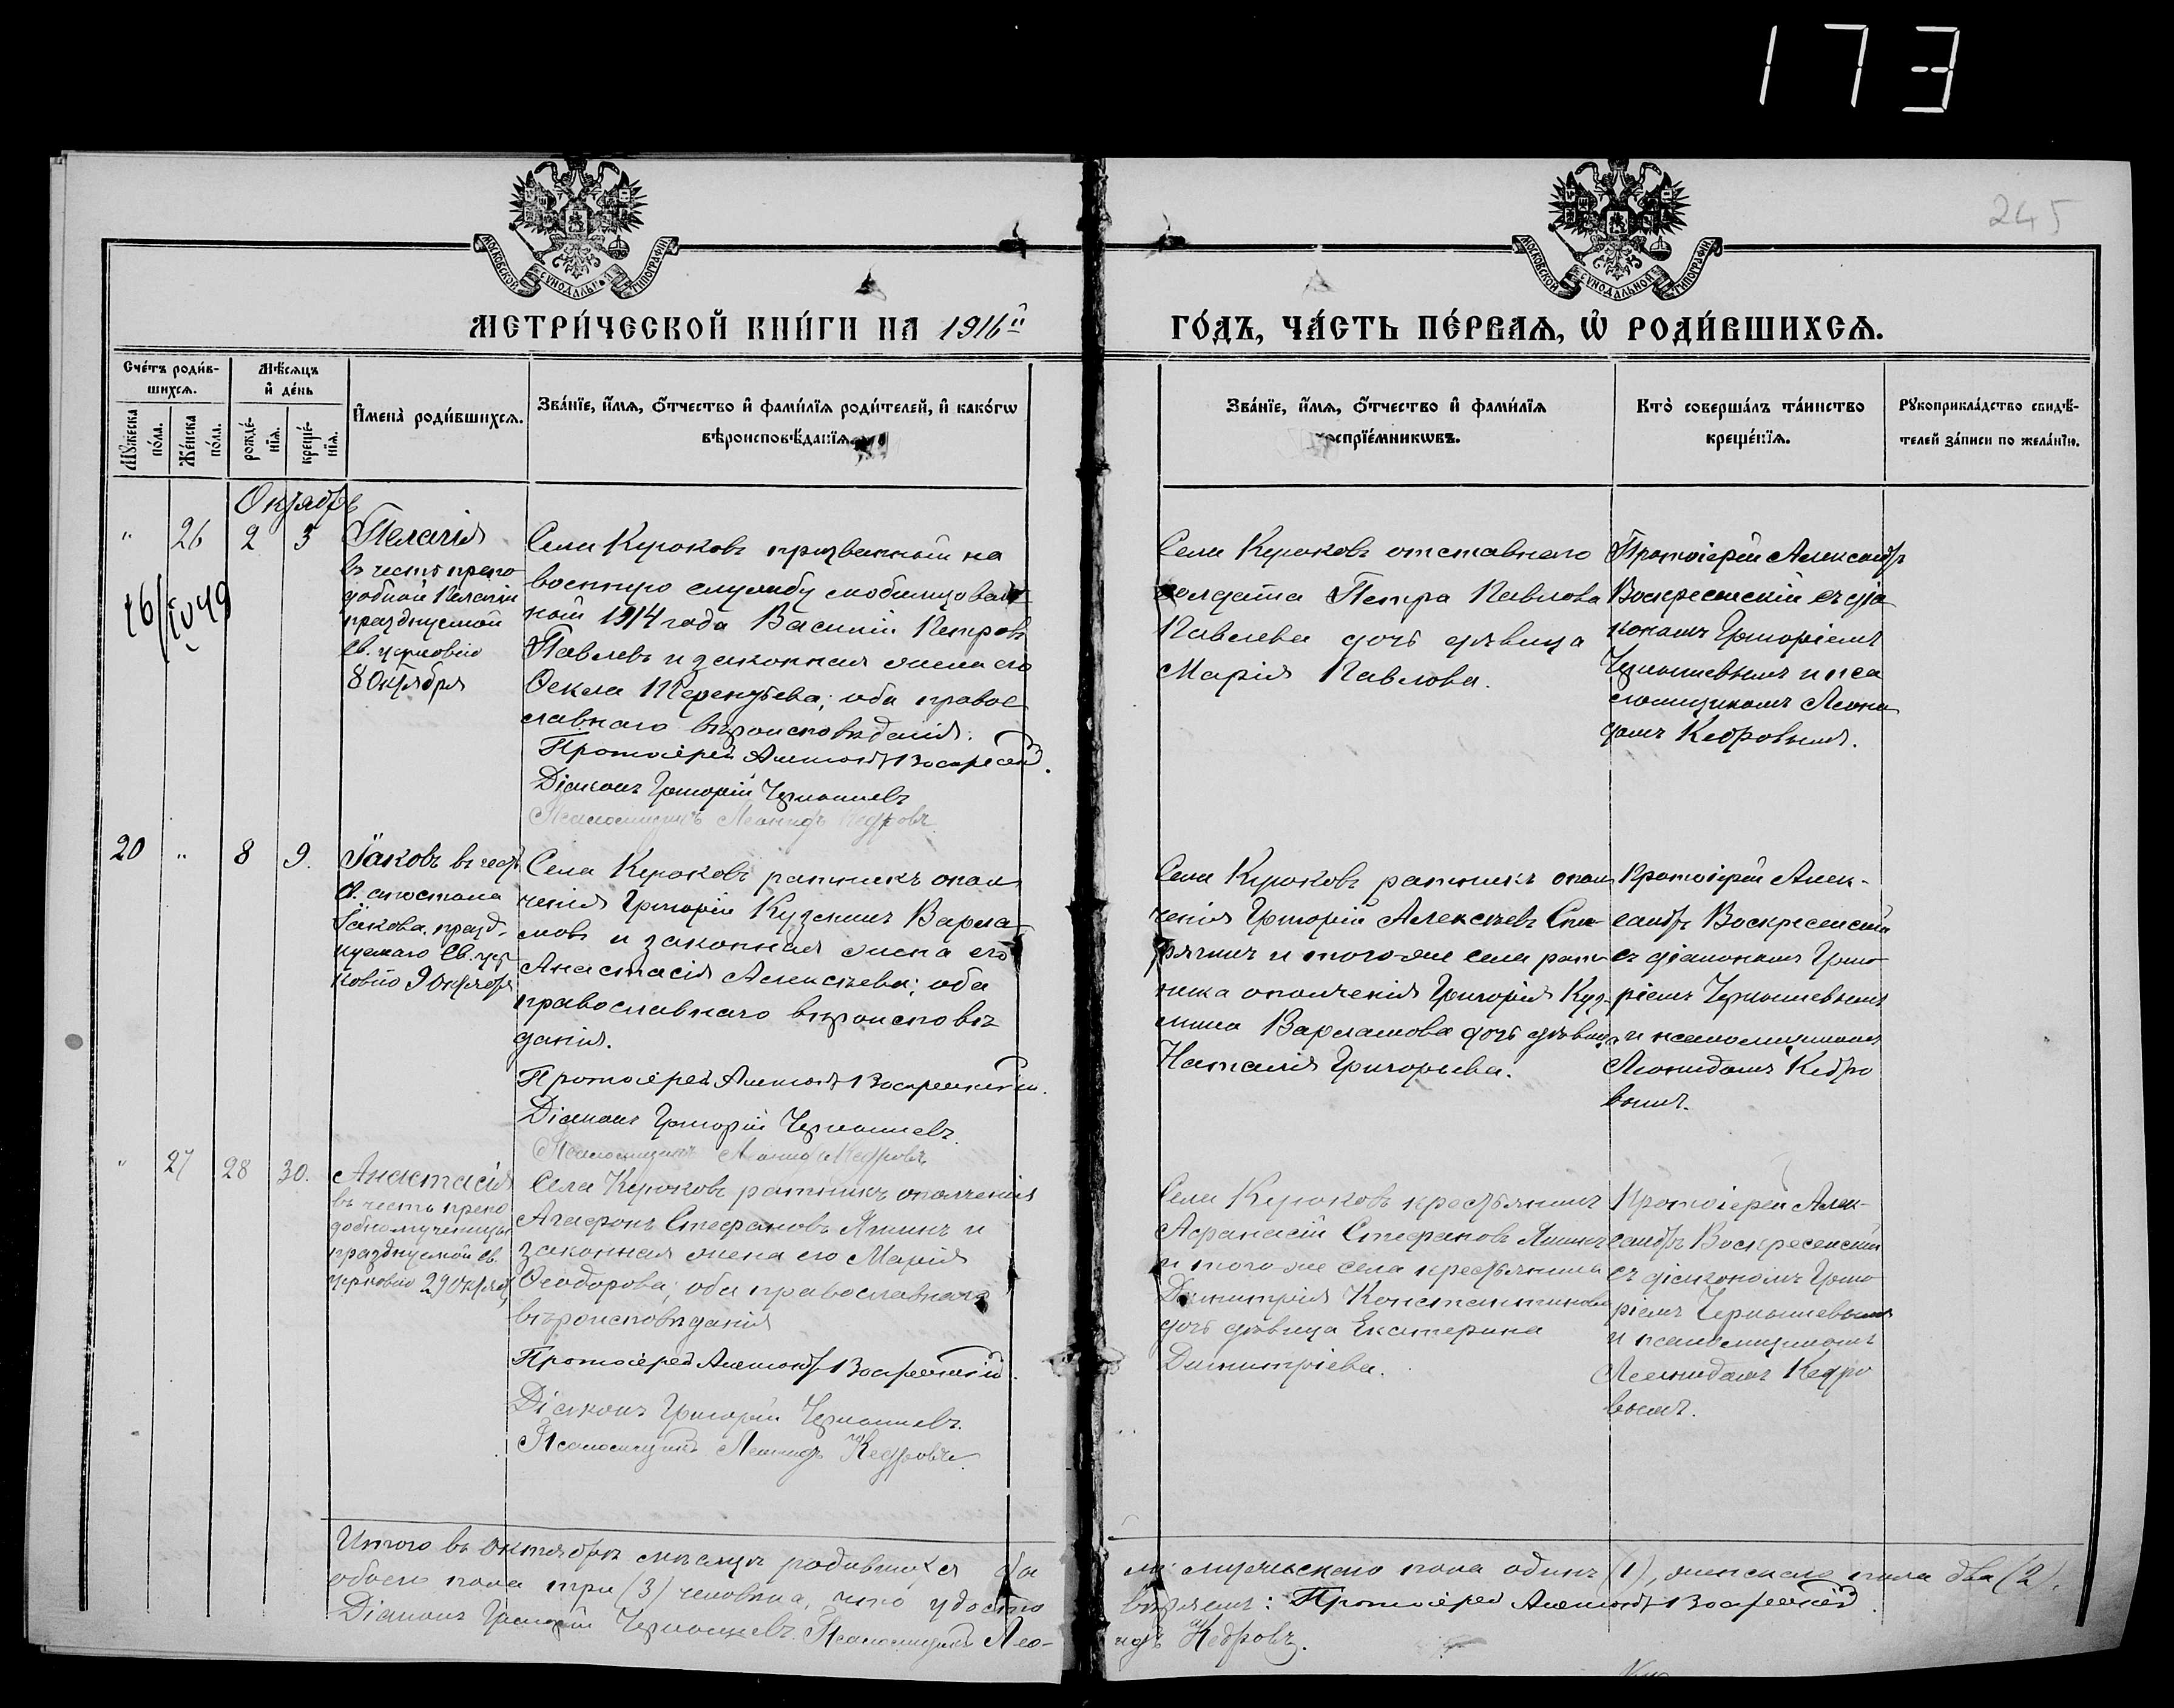 173
245
МОСКОВСКОЙ СУНОДАЛЬНОЙ ТИПОГРАФІИ
МОСКОВСКОЙ СУНОДАЛЬНОЙ ТИПОГРАФІИ
МЕТРИ́ЧЕСКОЙ КНИ́ГИ НА 1916й
ГО́ДЪ, ЧА́СТЬ ПЕ́РВАЯ, Ѡ҆ РОДИ́ВШИХСЯ.
Сче́тъ роди́в-
шихся.
Мꙋжеска по́ла.
Же́нска по́ла.
Мѣ́сяцъ
и҆ де́нь
рожде́-
нїя.
креще́-
нїя.
И҆мена̀ роди́вшихся.
Зва́нїе, и҆́мя, ѻ҆́тчество и҆ фами́лїя роди́телей, и҆ како́гѡ
вѣроисповѣ́данїя.
Зва́нїе, и҆́мя, ѻ҆́тчество и҆ фами́лїя
воспрїе́мникѡвъ.
Кто̀ соверша́лъ та́инство
креще́нїя.
Рꙋкоприкла́дство свидѣ́-
телей за́писи по жела́нїю.
Октябрь
" 26 2 3
†6/IV 49
Пелагія
въ честь препо
добной Пелагіи
празднуемой
св. церковію
8 Октября
Села Курюковъ призванный на
военную службу мобилизован
ный 1914 года Василій Петровъ
Павлевъ и законная жена его
Ѳекла Терентьева; оба право
славнаго вѣроисповѣданія.
Протоіерей Александръ Воскресенскій.
Діаконъ Григорій Чернышевъ
Псаломщикъ Леонидъ Кедровъ.
Села Курюковъ отставнаго
солдата Петра Павлова
Павлева дочь дѣвица
Марія Павлова.
Протоіерей Александръ
Воскресенскій съ діа
кономъ Григоріемъ
Чернышевымъ и пса
ломщикомъ Леони
домъ Кедровымъ.
20 " 8 9.
Іаковъ въ честь
св. апостола
Іакова, празд-
нуемаго Св. цер
ковію 9 октября
Села Курюковъ ратникъ опол
ченія Григорій Кузьминъ Варла
мовъ и законная жена его
Анастасія Алексѣева; оба
православнаго вѣроисповѣ
данія.
Протоіерей Александръ Воскресенскій.
Діаконъ Григорій Чернышевъ.
Псаломщикъ Леонидъ Кедровъ
Села Курюковъ ратникъ опол
ченія Григорій Алексѣевъ
и того-же села рат
ника ополченія Григорія Кузь
мина Варламова дочь дѣвица
Наталія Григорьева.
Протоіерей Алек-
сандръ Воскресенскій
съ діакономъ Григо
ріемъ Чернышевымъ
и псаломщикомъ
Леонидомъ Кедро
вымъ.
" 27 28 30.
Анастасія
въ честь препо
добномученицы
празднуемой св.
церковію 29 Октяб
Села Курюковъ ратникъ ополченія
Агафонъ Стефановъ Яшинъ и
законная жена его Марія
Ѳеодорова; оба православнаго
вѣроисповѣданія
Протоіерей Александръ Воскресенскій.
Діаконъ Григорій Чернышевъ.
Псаломщикъ Леонидъ Кедровъ.
Села Курюковъ крестьянинъ
Аѳанасій Стефановъ Яшинъ
и того-же села крестьянина
Димитрія Константинова
дочь дѣвица Екатерина
Димитріева.
Протоіерей Алек-
сандръ Воскресенскій
съ діакономъ Григо
ріемъ Чернышевымъ
и псаломщикомъ
Леонидомъ Кедро
вымъ.
Итого въ Октябрѣ мѣсяцѣ родившихся
обоего пола три (3) человѣка, что удосто
Діаконъ Григорій Чернышевъ. Псаломщикъ Лео-
мужескаго пола одинъ (1), женскаго пола два (2).
вѣряемъ: Протоіерей Александръ Воскресенскій.
нидъ Кедровъ.